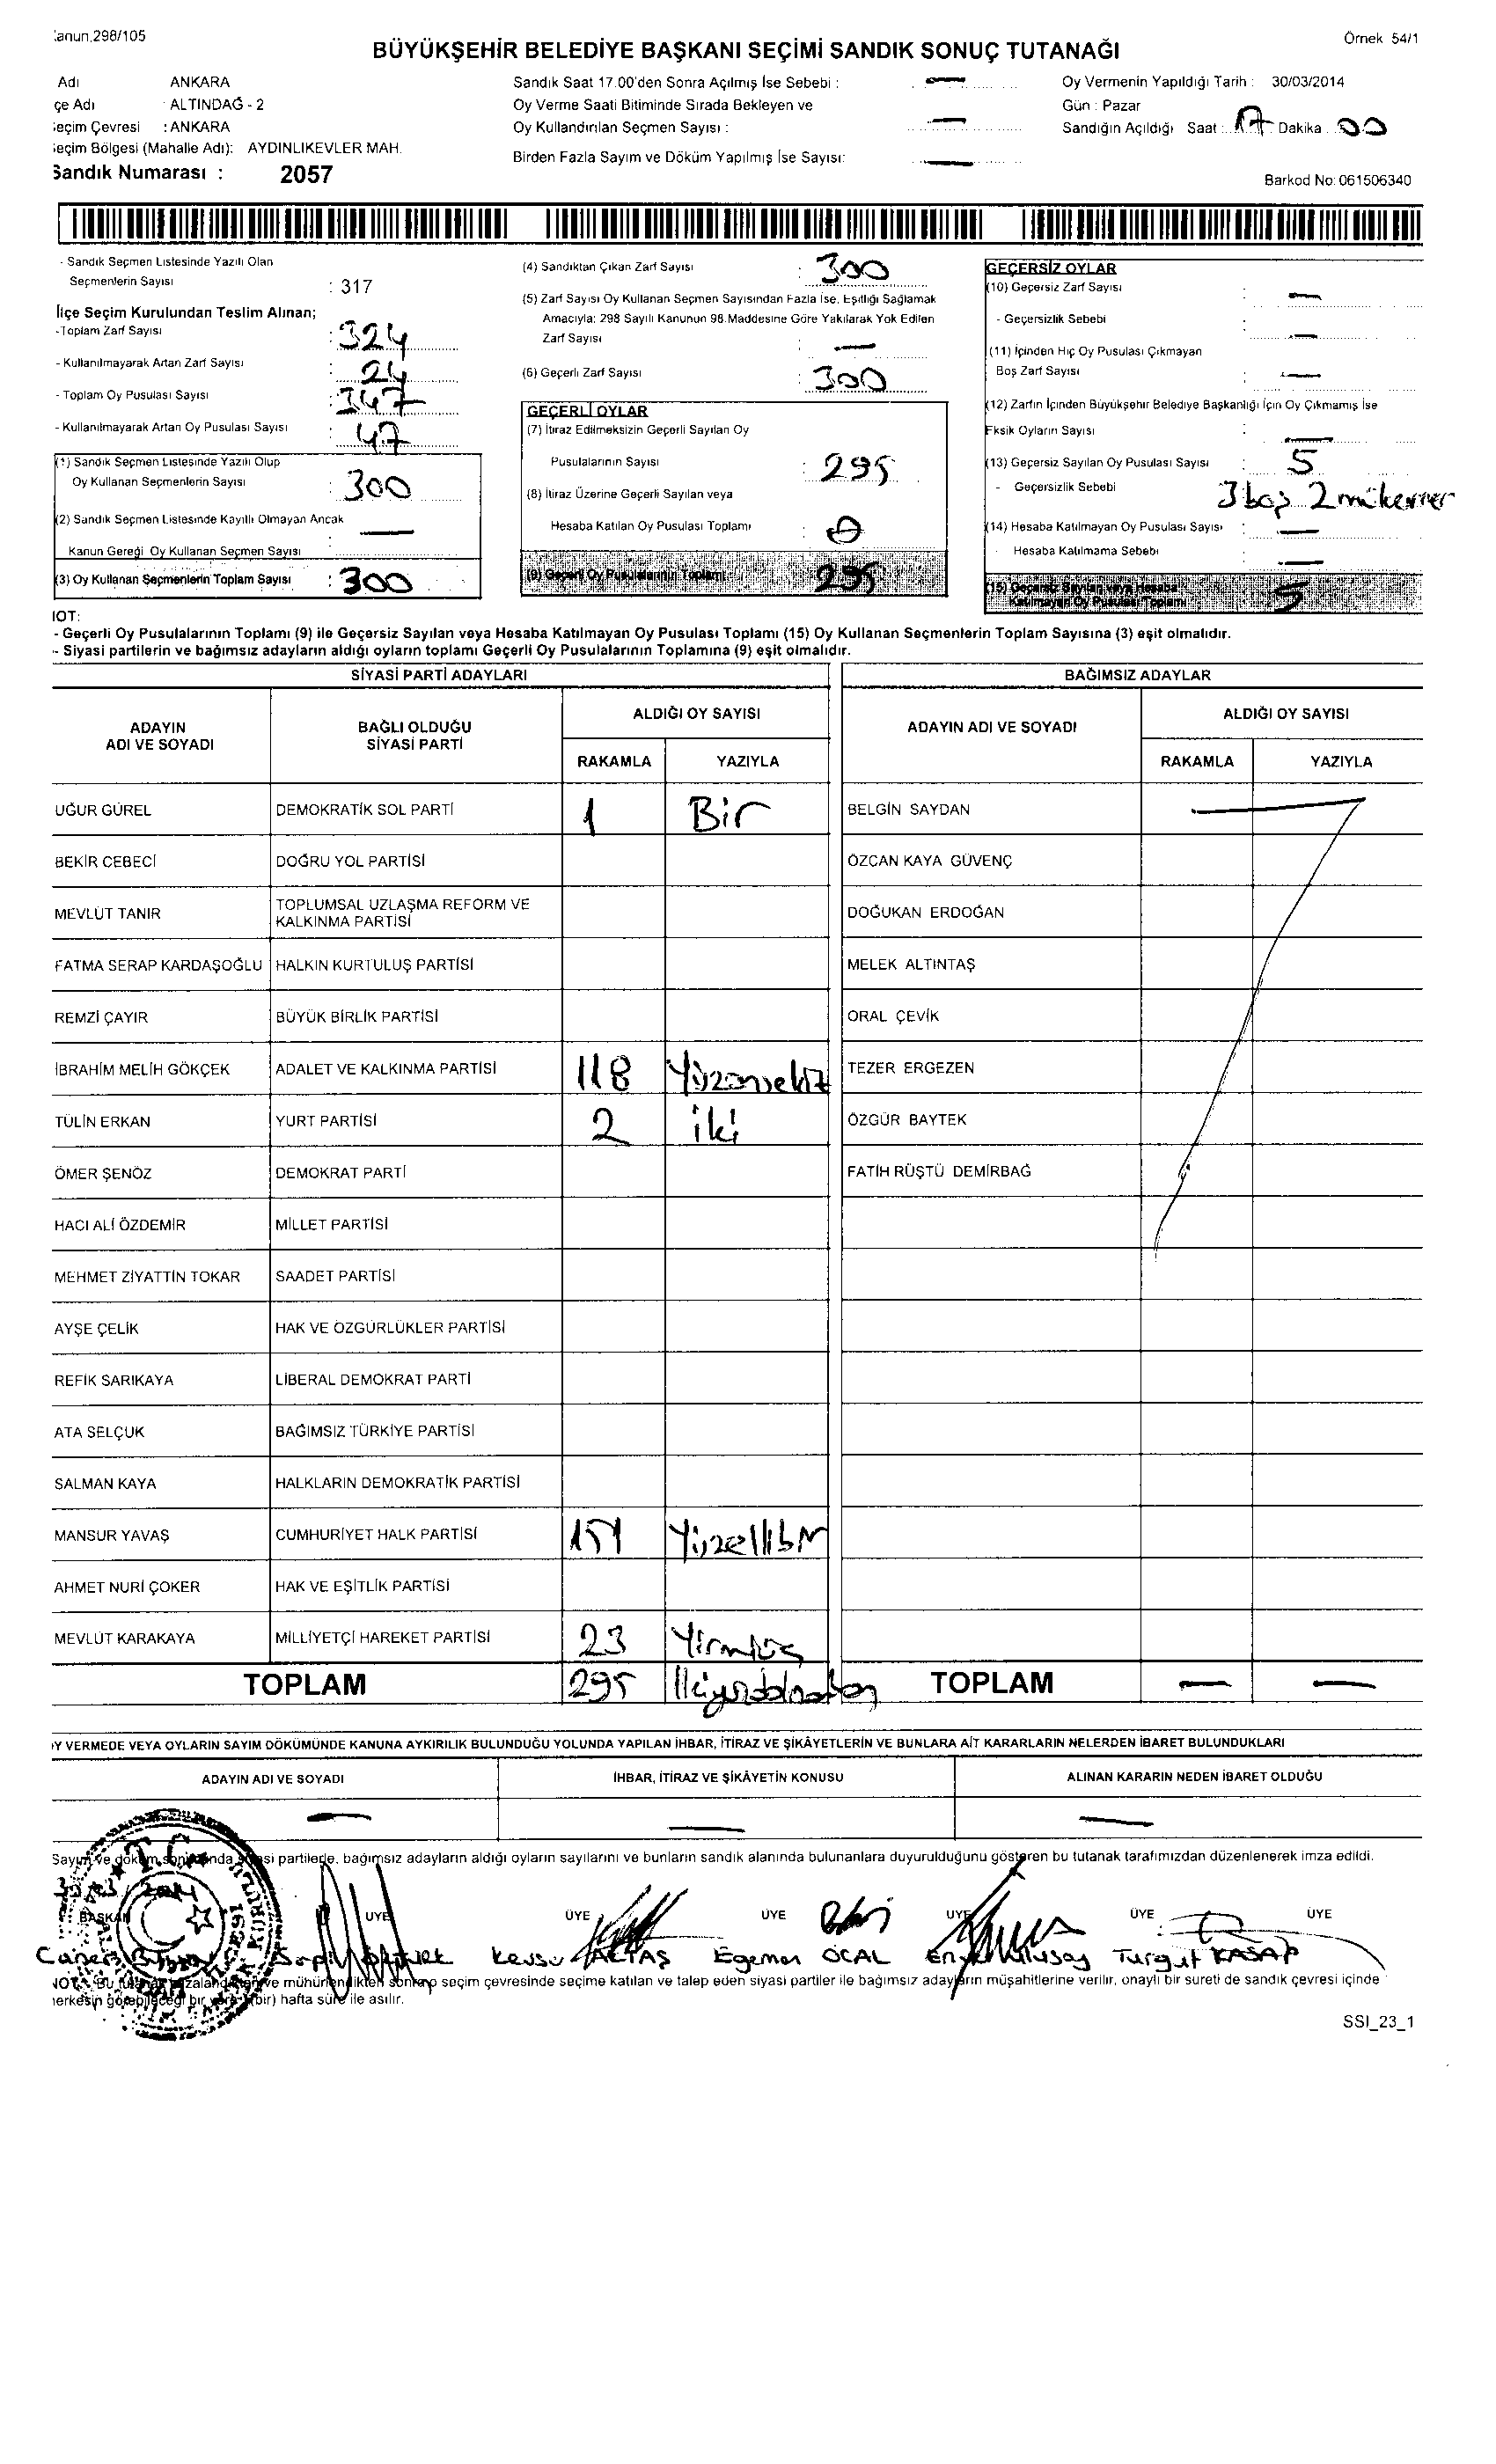 anun,298/105
Örnek 54/1
BÜYÜKŞEHİR BELEDİYE BAŞKANI SEÇİMİ SANDIK SONUÇ TUTANAĞI
Adı ANKARA
çe Adı : ALTINDAĞ - 2
eçim Çevresi : ANKARA
eçim Bölgesi (Mahalle Adı): AYDINLIKEVLER MAH.
Sandık Numarası : 2057
Sandık Saat 17.00'den Sonra Açılmış İse Sebebi : —
Oy Verme Saati Bitiminde Sırada Bekleyen ve
Oy Kullandırılan Seçmen Sayısı : —
Birden Fazla Sayım ve Döküm Yapılmış İse Sayısı: —
Oy Vermenin Yapıldığı Tarih : 30/03/2014
Gün : Pazar
Sandığın Açıldığı Saat : 17 Dakika 00
Barkod No: 061506340
- Sandık Seçmen Listesinde Yazılı Olan
Seçmenlerin Sayısı : 317
İlçe Seçim Kurulundan Teslim Alınan;
-Toplam Zarf Sayısı : 324
- Kullanılmayarak Artan Zarf Sayısı : 24
- Toplam Oy Pusulası Sayısı : 347
- Kullanılmayarak Artan Oy Pusulası Sayısı : 47
(1) Sandık Seçmen Listesinde Yazılı Olup
Oy Kullanan Seçmenlerin Sayısı : 300
(2) Sandık Seçmen Listesinde Kayıtlı Olmayan Ancak
Kanun Gereği Oy Kullanan Seçmen Sayısı : —
(3) Oy Kullanan Seçmenlerin Toplam Sayısı : 300
(4) Sandıktan Çıkan Zarf Sayısı : 300
(5) Zarf Sayısı Oy Kullanan Seçmen Sayısından Fazla İse, Eşitliği Sağlamak
Amacıyla; 298 Sayılı Kanunun 98.Maddesine Göre Yakılarak Yok Edilen
Zarf Sayısı : —
(6) Geçerli Zarf Sayısı : 300
GEÇERLİ OYLAR
(7) İtiraz Edilmeksizin Geçerli Sayılan Oy
Pusulalarının Sayısı : 295
(8) İtiraz Üzerine Geçerli Sayılan veya
Hesaba Katılan Oy Pusulası Toplamı : 0
(9) Geçerli Oy Pusulalarının Toplamı : 295
GEÇERSİZ OYLAR
(10) Geçersiz Zarf Sayısı : —
- Geçersizlik Sebebi : —
(11) İçinden Hiç Oy Pusulası Çıkmayan
Boş Zarf Sayısı : —
(12) Zarfın İçinden Büyükşehir Belediye Başkanlığı İçin Oy Çıkmamış İse
Eksik Oyların Sayısı : —
(13) Geçersiz Sayılan Oy Pusulası Sayısı : 5
- Geçersizlik Sebebi 3 boş 2 mükerrer
(14) Hesaba Katılmayan Oy Pusulası Sayısı : —
Hesaba Katılmama Sebebi : —
(15) Geçersiz Sayılan veya Hesaba
Katılmayan Oy Pusulası Toplamı : 5
NOT:
- Geçerli Oy Pusulalarının Toplamı (9) ile Geçersiz Sayılan veya Hesaba Katılmayan Oy Pusulası Toplamı (15) Oy Kullanan Seçmenlerin Toplam Sayısına (3) eşit olmalıdır.
- Siyasi partilerin ve bağımsız adayların aldığı oyların toplamı Geçerli Oy Pusulalarının Toplamına (9) eşit olmalıdır.
SİYASİ PARTİ ADAYLARI BAĞIMSIZ ADAYLAR
ADAYIN ADI VE SOYADI BAĞLI OLDUĞU SİYASİ PARTİ ALDIĞI OY SAYISI ADAYIN ADI VE SOYADI ALDIĞI OY SAYISI
RAKAMLA YAZIYLA RAKAMLA YAZIYLA
UĞUR GÜREL DEMOKRATİK SOL PARTİ 1 Bir BELGİN SAYDAN —
BEKİR CEBECİ DOĞRU YOL PARTİSİ ÖZCAN KAYA GÜVENÇ
MEVLÜT TANIR TOPLUMSAL UZLAŞMA REFORM VE KALKINMA PARTİSİ DOĞUKAN ERDOĞAN
FATMA SERAP KARDAŞOĞLU HALKIN KURTULUŞ PARTİSİ MELEK ALTINTAŞ
REMZİ ÇAYIR BÜYÜK BİRLİK PARTİSİ ORAL ÇEVİK
İBRAHİM MELİH GÖKÇEK ADALET VE KALKINMA PARTİSİ 118 Yüzonsekiz TEZER ERGEZEN
TÜLİN ERKAN YURT PARTİSİ 2 iki ÖZGÜR BAYTEK
ÖMER ŞENÖZ DEMOKRAT PARTİ FATİH RÜŞTÜ DEMİRBAĞ
HACI ALİ ÖZDEMİR MİLLET PARTİSİ
MEHMET ZİYATTİN TOKAR SAADET PARTİSİ
AYŞE ÇELİK HAK VE ÖZGÜRLÜKLER PARTİSİ
REFİK SARIKAYA LİBERAL DEMOKRAT PARTİ
ATA SELÇUK BAĞIMSIZ TÜRKİYE PARTİSİ
SALMAN KAYA HALKLARIN DEMOKRATİK PARTİSİ
MANSUR YAVAŞ CUMHURİYET HALK PARTİSİ 151 Yüzellibir
AHMET NURİ ÇOKER HAK VE EŞİTLİK PARTİSİ
MEVLÜT KARAKAYA MİLLİYETÇİ HAREKET PARTİSİ 23 Yirmiüç
TOPLAM 295 TOPLAM — —
Y VERMEDE VEYA OYLARIN SAYIM DÖKÜMÜNDE KANUNA AYKIRILIK BULUNDUĞU YOLUNDA YAPILAN İHBAR, İTİRAZ VE ŞİKÂYETLERİN VE BUNLARA AİT KARARLARIN NELERDEN İBARET BULUNDUKLARI
ADAYIN ADI VE SOYADI İHBAR, İTİRAZ VE ŞİKÂYETİN KONUSU ALINAN KARARIN NEDEN İBARET OLDUĞU
— — —
Sayım ve döküm sonucunda siyasi partilerle, bağımsız adayların aldığı oyların sayılarını ve bunların sandık alanında bulunanlara duyurulduğunu gösteren bu tutanak tarafımızdan düzenlenerek imza edildi.
BAŞKAN ÜYE ÜYE ÜYE ÜYE ÜYE ÜYE
Caner ALTAŞ Egemen ÖCAL Ulusoy Turgut KASAP
NOT: Bu tutanak imzalandıktan ve mühürlendikten sonra o seçim çevresinde seçime katılan ve talep eden siyasi partiler ile bağımsız adayların müşahitlerine verilir, onaylı bir sureti de sandık çevresi içinde
herkesin görebileceği bir yere (bir) hafta süre ile asılır.
SSI_23_1